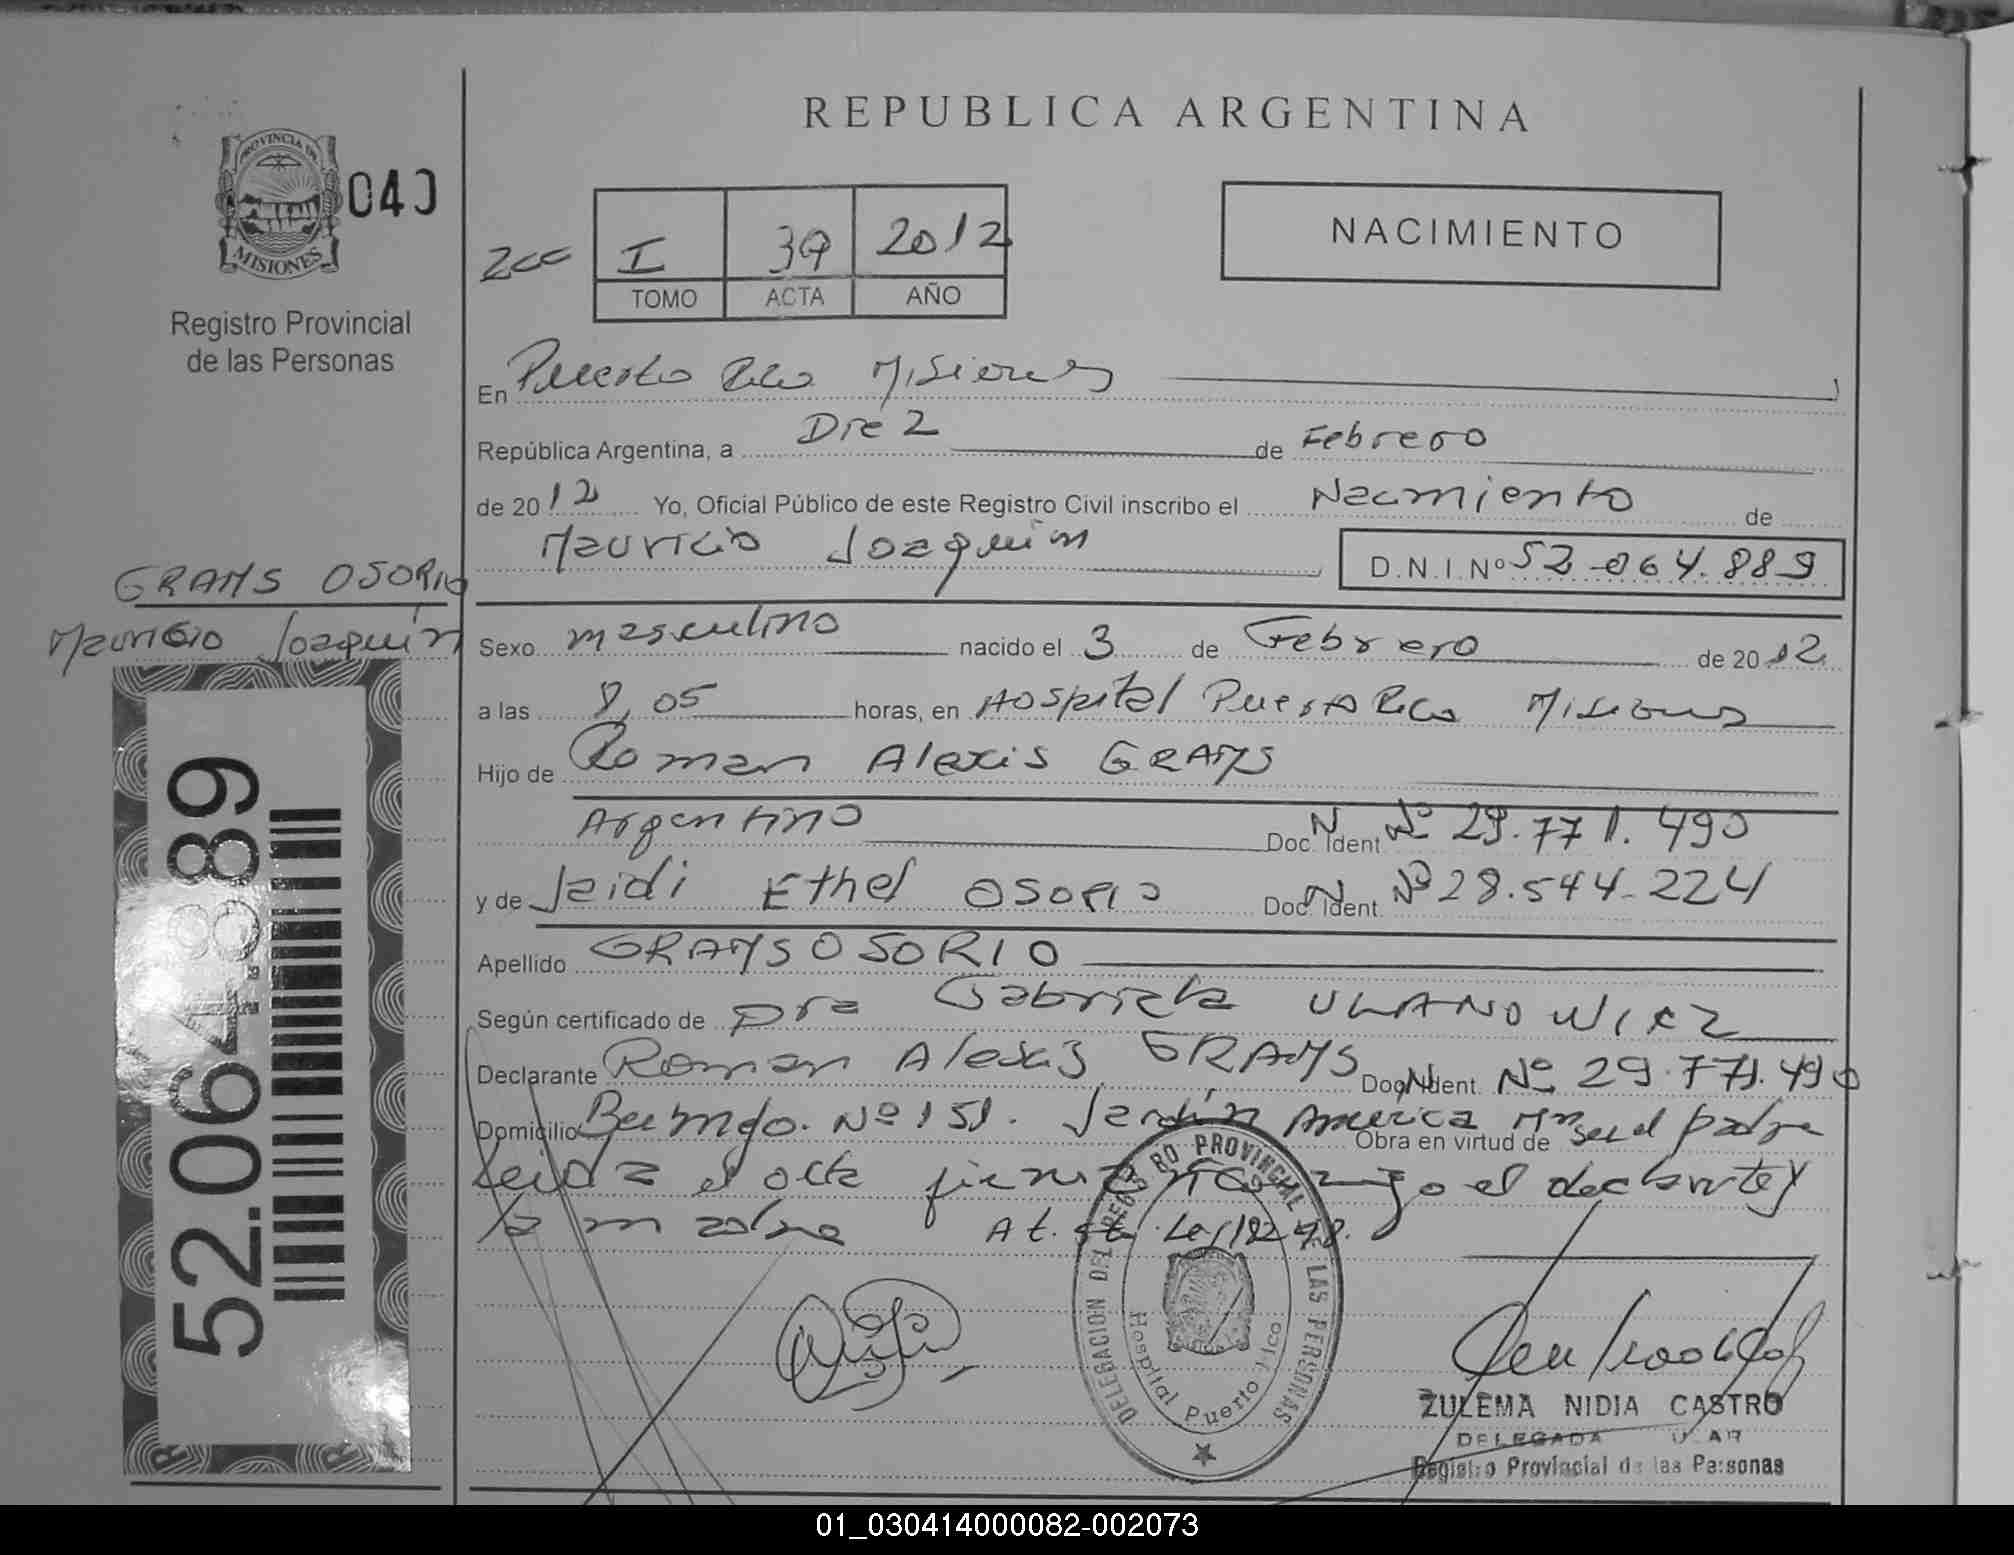 REPUBLICA ARGENTINA
PROVINCIA DE
MISIONES
040
Registro Provincial
de las Personas
I 39 2012
TOMO ACTA AÑO
NACIMIENTO
En Puerto Rico Misiones
República Argentina, a Diez de Febrero
de 2012 Yo, Oficial Público de este Registro Civil inscribo el Nacimiento de
Mauricio Joaquín D.N.I.Nº 52.064.889
GRAMS OSORIO
Mauricio Joaquín
Sexo masculino nacido el 3 de Febrero de 2012
a las 8,05 horas, en Hospital Puerto Rico Misiones
Hijo de Roman Alexis GRAMS
Argentino Doc. N Ident Nº 29.771.490
y de Jeidi Ethel OSORIO Doc. N Ident. Nº 28.544.224
Apellido GRAMS OSORIO
Según certificado de Dra Gabriela ULANOWICZ
Declarante Roman Alexis GRAMS Doc. N Ident. Nº 29.771.490
Domicilio Nº 151. Jardín America Mnes Obra en virtud de ser el padre
Leida el acta firma conmigo el declarante y
la madre
52.064.889
DELEGACION DEL REGISTRO PROVINCIAL DE LAS PERSONAS
Hospital Puerto Rico
ZULEMA NIDIA CASTRO
DELEGADA
Registro Provincial de las Personas
01_030414000082-002073